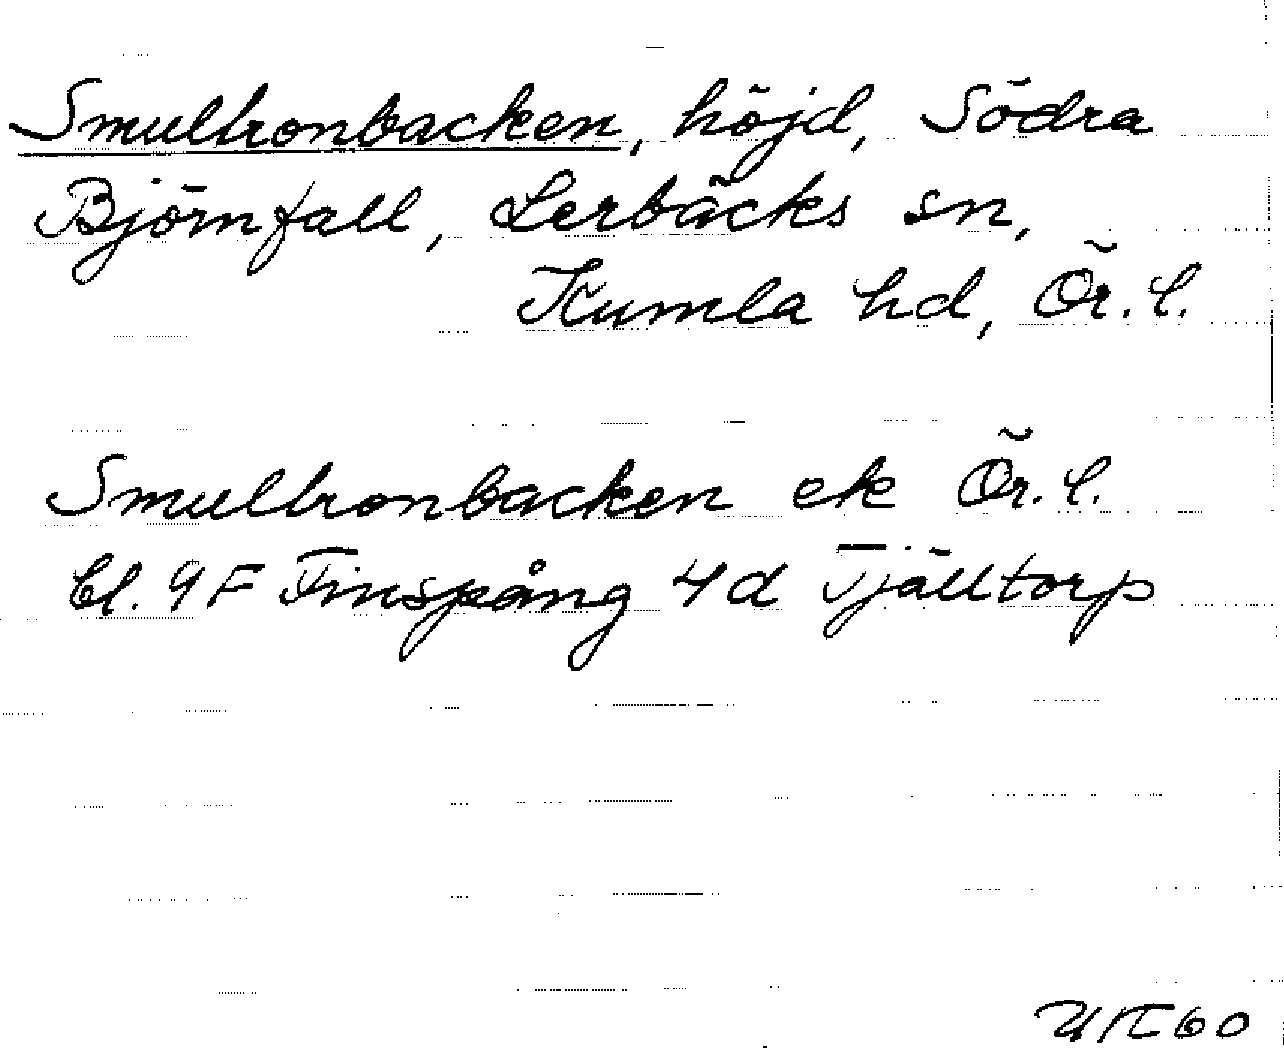 Smultronbacken, höjd, Södra
Björnfall, Lerbäcks sn,
Kumla hd, Ör. l.
Smultronbacken ek Ör. l.
bl. 9F Finspång 4d Tjälltorp